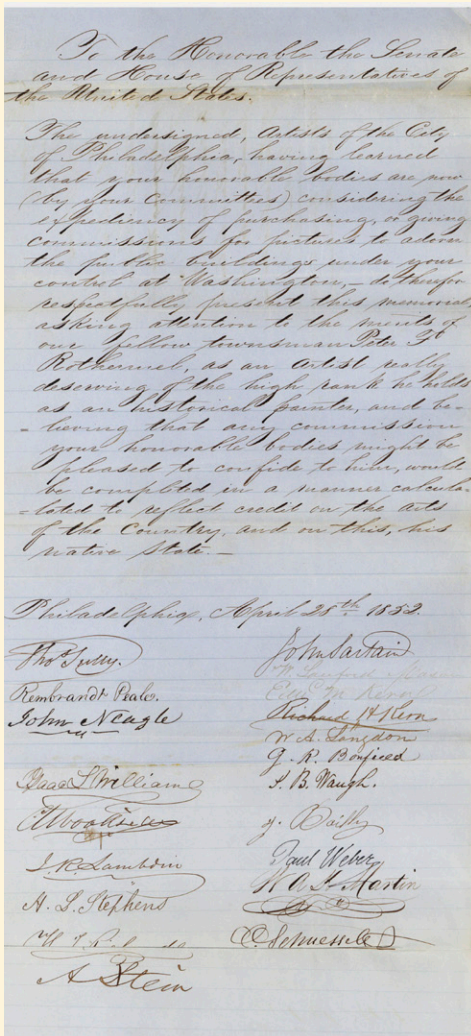 To the Honorable the Senate
and House of Representatives of
the United States.
The undersigned, Artists of the City
of Philadelphia, having learned
that your honorable bodies are now
(by your Committees) considering the
expediency of purchasing, or giving
commissions for pictures to adorn
the public buildings under your
control at Washington,– do therefor
respectfully present this memorial
asking attention to the merits of
our fellow townsman Peter F.
Rothermel, as an Artist really
deserving of the high rank he holds
as an historical painter, and be-
-lieving that any commission
your honorable bodies might be
pleased to confide to him, would
be completed in a manner calcula-
-lated to reflect credit on the arts
of the Country, and on this, his
native State.–
Philadelphia, April 25th 1852.
Thos Sully.
John Sartain
Rembrandt Peale.
Richard H Kern
John Neagle
W. A. Langdon
G. R. Bonfield
Isaac L Williams
S. B. Waugh.
J. R. Lambdin
Paul Weber
H. L. Stephens
W A K Martin
C. Schuessele
A Stein